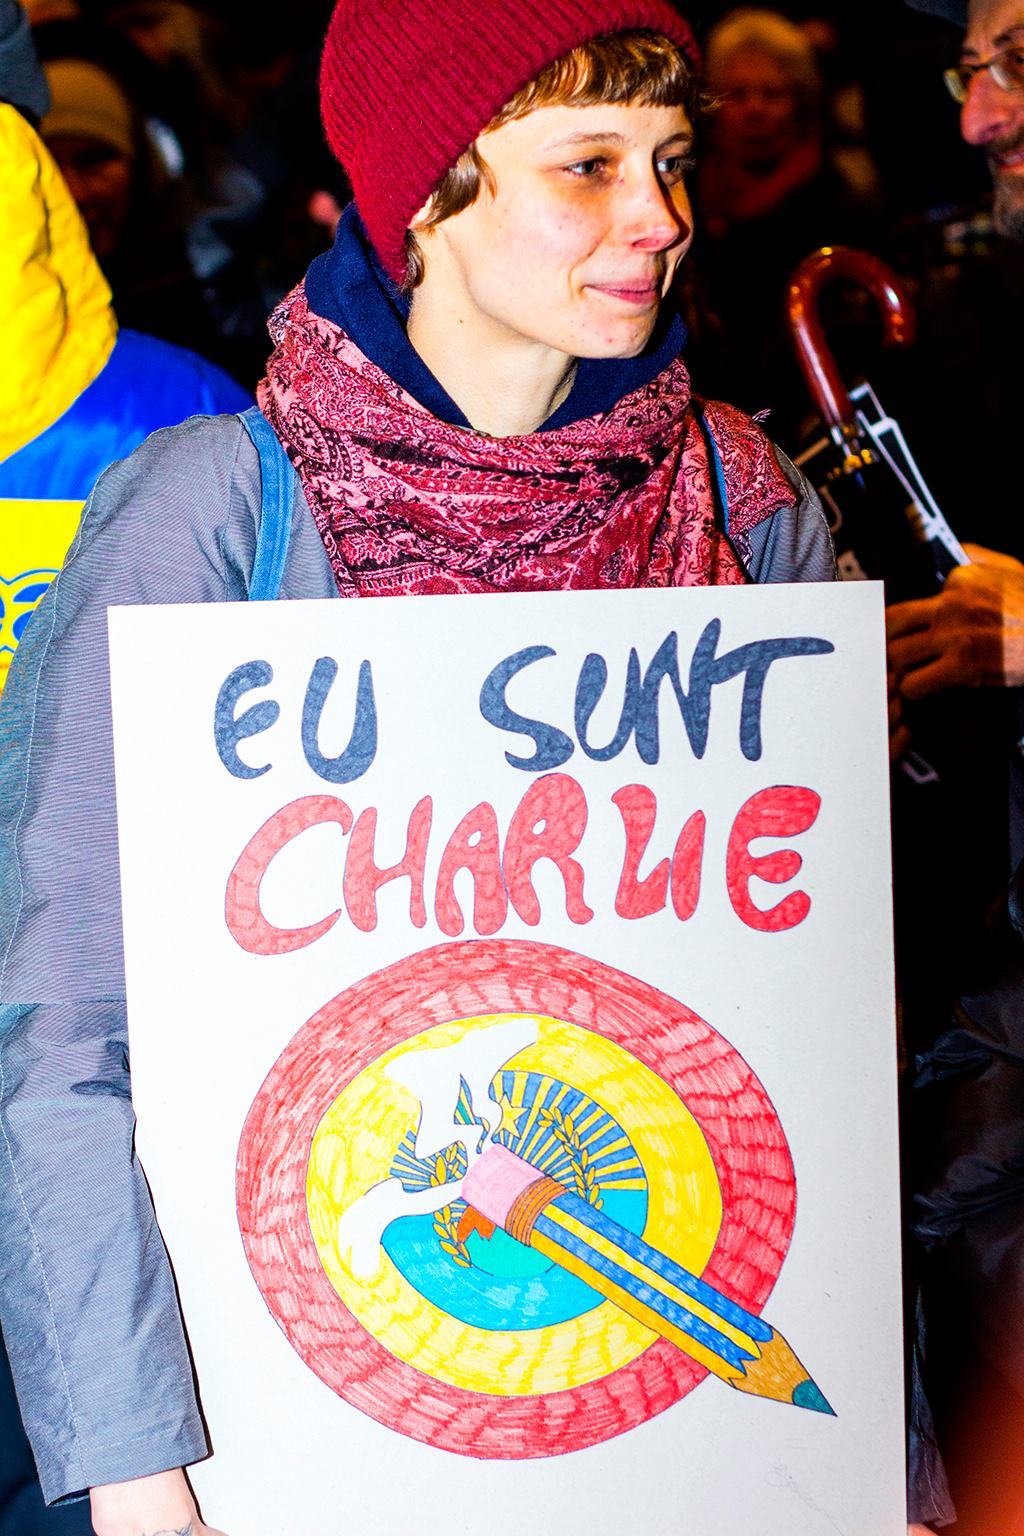 EU SUNT
CHARLIE